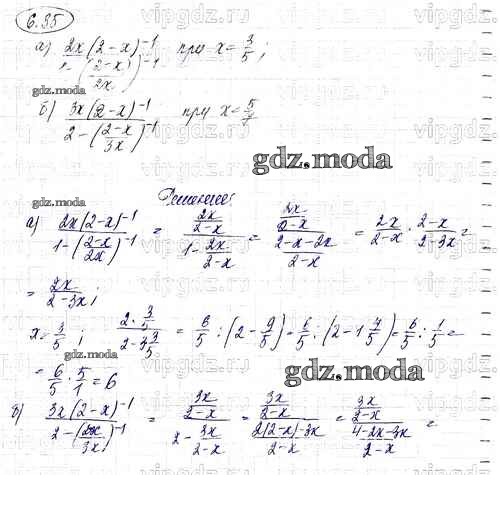 6.35
а) \frac{2x(2-x)^{-1}}{1-(\frac{2-x}{2x})^{-1}} при x = \frac{3}{5};
б) \frac{3x(2-x)^{-1}}{2-(\frac{2-x}{3x})^{-1}} при x =
gdz.moda
gdz.moda
Решение:
gdz.moda
а) \frac{2x(2-x)^{-1}}{1-(\frac{2-x}{2x})^{-1}} = \frac{\frac{2x}{2-x}}{1-\frac{2x}{2-x}} = \frac{\frac{2x}{2-x}}{\frac{2-x-2x}{2-x}} = \frac{2x}{2-x} · \frac{2-x}{2-3x} =
= \frac{2x}{2-3x};
x = \frac{3}{5}; \frac{2·\frac{3}{5}}{2-3\frac{3}{5}} = \frac{6}{5} : (2-\frac{9}{5}) = \frac{6}{5} : (2-1\frac{4}{5}) = \frac{6}{5} : \frac{1}{5} =
gdz.moda
= \frac{6}{5} · \frac{5}{1} = 6
gdz.moda
б) \frac{3x(2-x)^{-1}}{2-(\frac{2-x}{3x})^{-1}} = \frac{\frac{3x}{2-x}}{2-\frac{3x}{2-x}} = \frac{\frac{3x}{2-x}}{\frac{2(2-x)-3x}{2-x}} = \frac{\frac{3x}{2-x}}{\frac{4-2x-3x}{2-x}} =